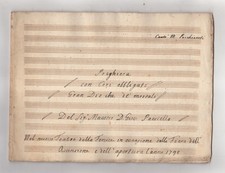 Preghiera
con Cori obbligati
Gran Dio che ci mirate
Del Sig. Maestro D. Gio. Paisiello
Nel nuovo Teatro della Fenice in occasione della Fiera dell'
Ascensione e dell'apertura l'anno 1792